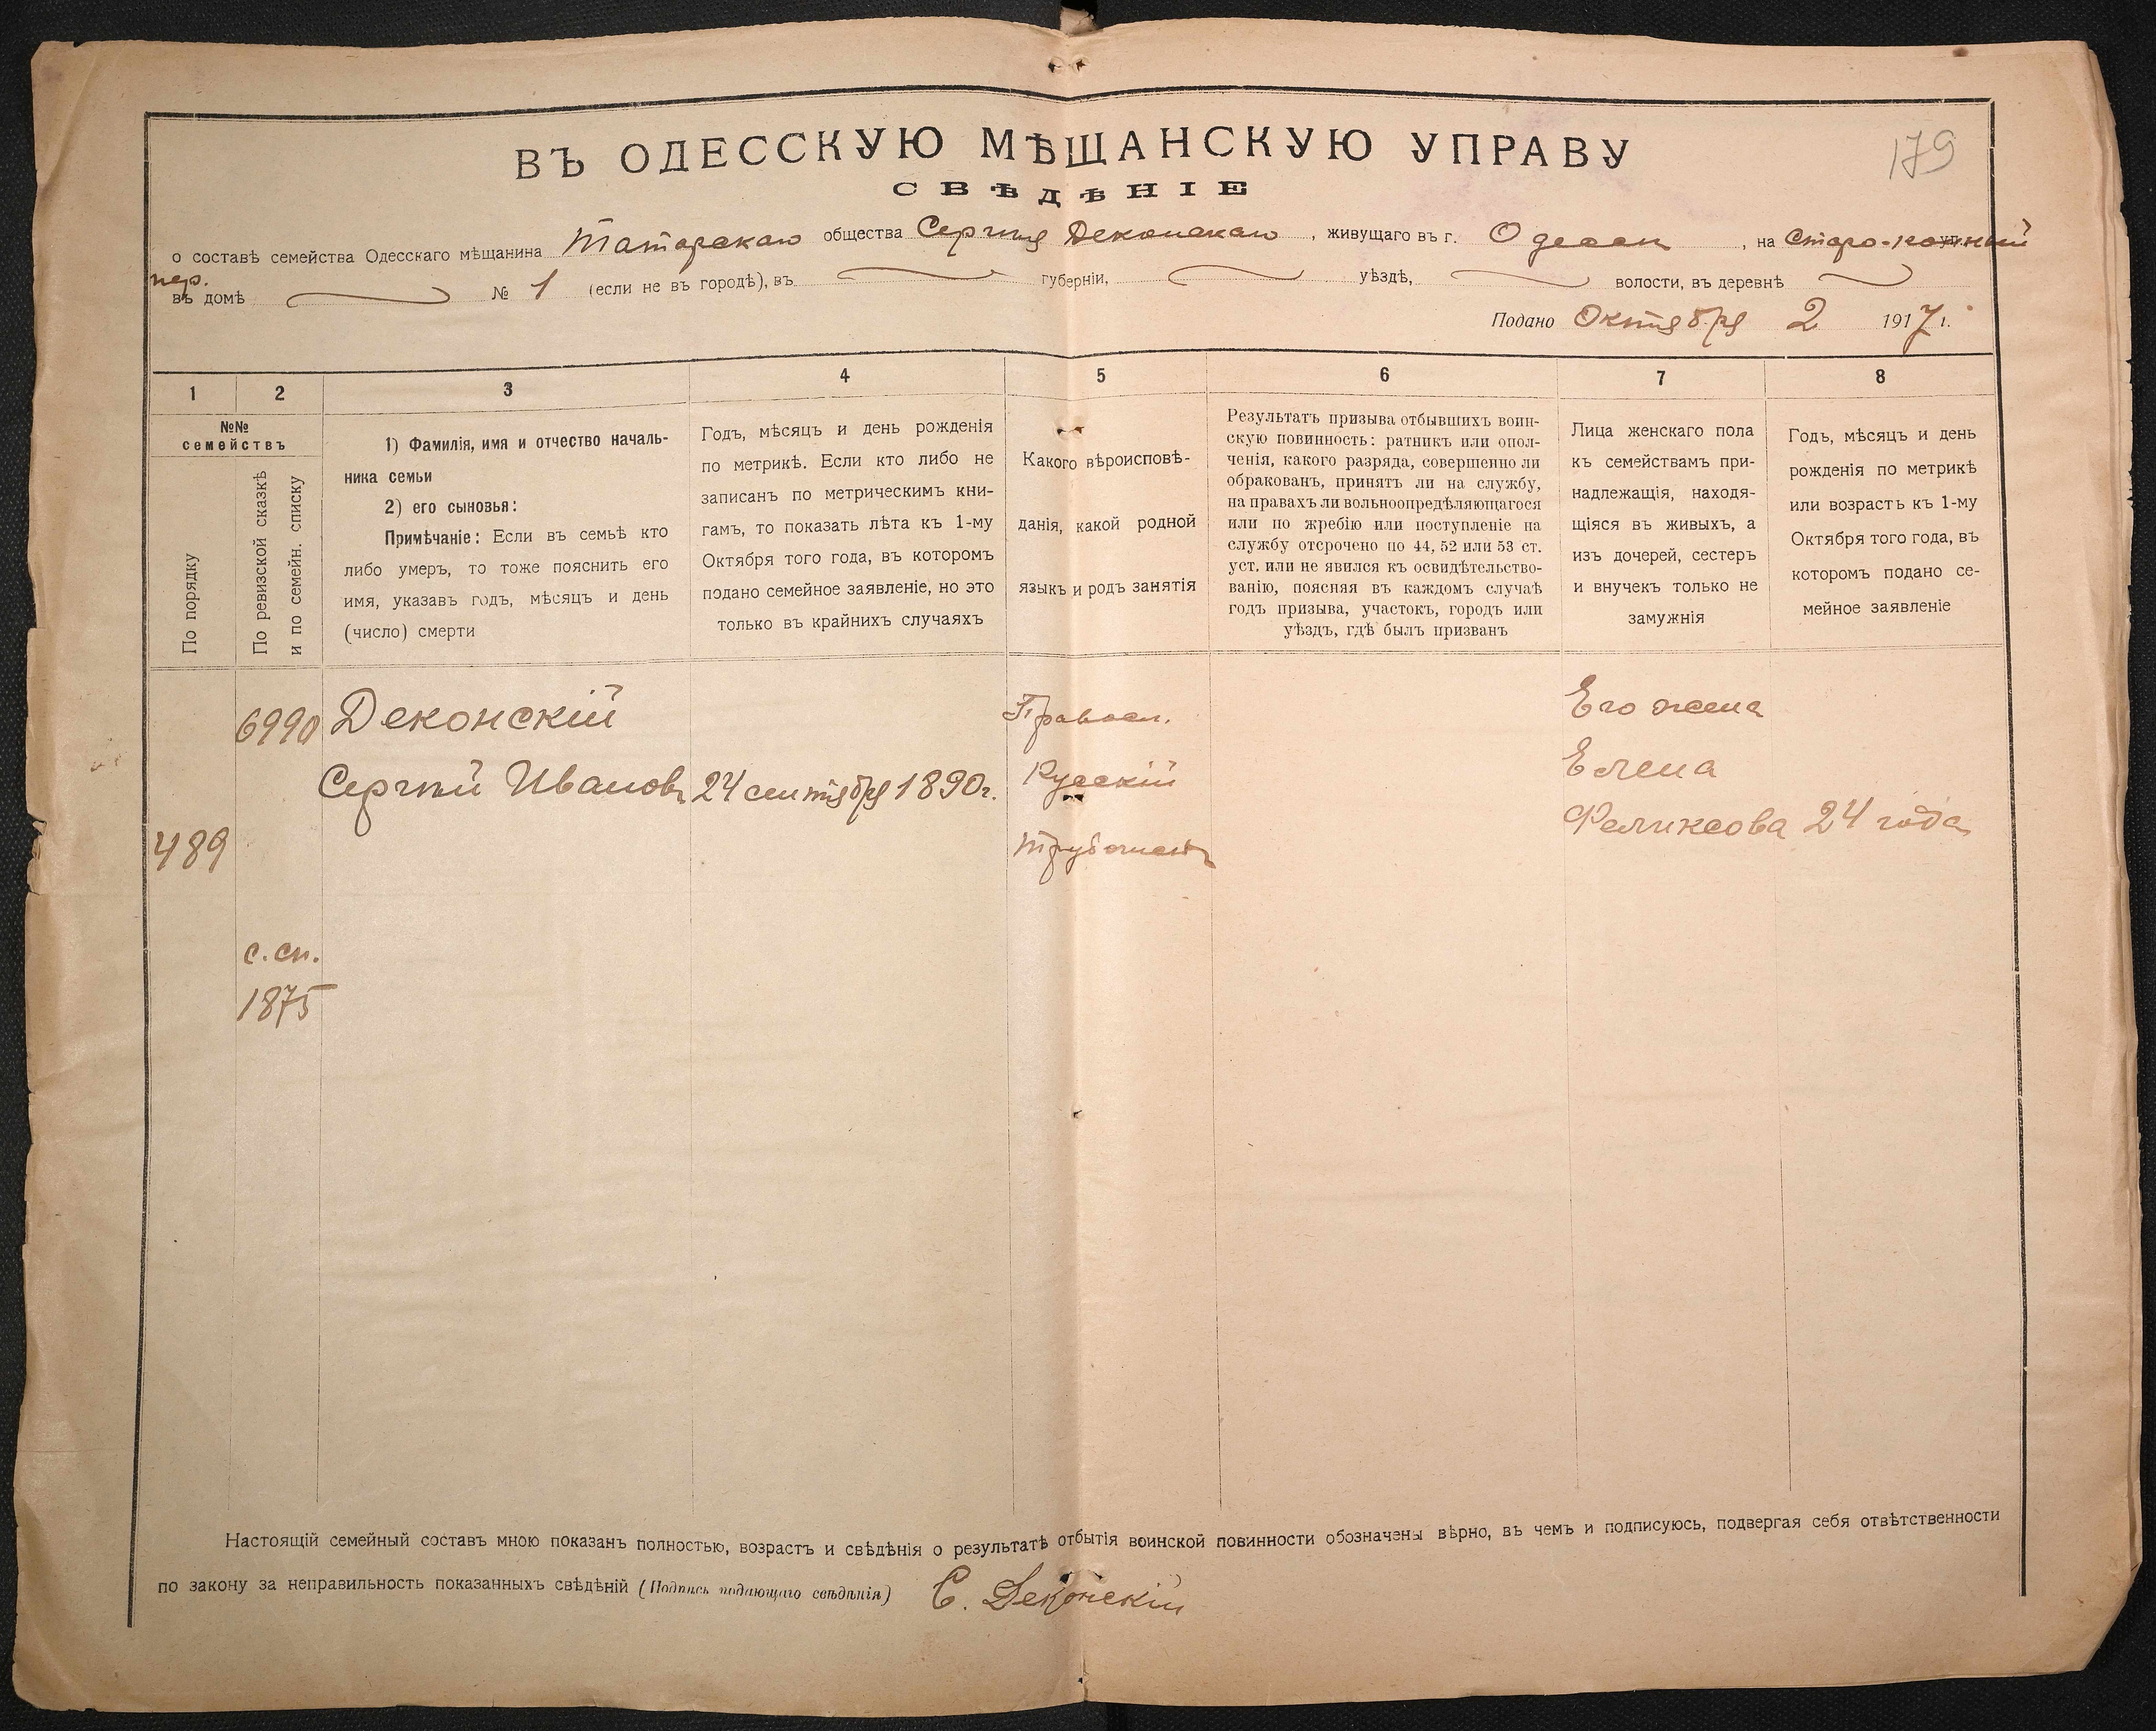 179
ВЪ ОДЕССКУЮ МѢЩАНСКУЮ УПРАВУ
СВѢДѢНІЕ
о составѣ семейства Одесскаго мѣщанина Татарскаго общества Сергѣя Деконскаго, живущаго въ г. Одессѣ, на Старо-конный
пер.
въ домѣ № 1 (если не въ городѣ), въ губерніи, уѣздѣ, волости, въ деревнѣ
Подано Октября 2 1917 г.
1 2 3 4 5 6 7 8
№№
семействъ
По порядку
По ревизской сказкѣ
и по семейн. списку
1) Фамилія, имя и отчество началь-
ника семьи
2) его сыновья:
Примѣчаніе: Если въ семьѣ кто
либо умеръ, то тоже пояснить его
имя, указавъ годъ, мѣсяцъ и день
(число) смерти
Годъ, мѣсяцъ и день рожденія
по метрикѣ. Если кто либо не
записанъ по метрическимъ кни-
гамъ, то показать лѣта къ 1-му
Октября того года, въ которомъ
подано семейное заявленіе, но это
только въ крайнихъ случаяхъ
Какого вѣроисповѣ-
данія, какой родной
языкъ и родъ занятія
Результатъ призыва отбывшихъ воин-
скую повинность: ратникъ или опол-
ченія, какого разряда, совершенно ли
обракованъ, принятъ ли на службу,
на правахъ ли вольноопредѣляющагося
или по жребію или поступленіе на
службу отсрочено по 44, 52 или 53 ст.
уст. или не явился къ освидѣтельство-
ванію, поясняя въ каждомъ случаѣ
годъ призыва, участокъ, городъ или
уѣздъ, гдѣ былъ призванъ
Лица женскаго пола
къ семействамъ при-
надлежащія, находя-
щіяся въ живыхъ, а
изъ дочерей, сестеръ
и внучекъ только не
замужнія
Годъ, мѣсяцъ и день
рожденія по метрикѣ
или возрасть къ 1-му
Октября того года, въ
которомъ подано се-
мейное заявленіе
6990 Деконскій Правосл. Его жена
Сергѣй Ивановъ 24 сентября 1890 г. Русскій Елена
489 Трубочистъ Феликсова 24 года
с. сп.
1875
Настоящій семейный составъ мною показанъ полностью, возрастъ и свѣдѣнія о результатѣ отбытія воинской повинности обозначены вѣрно, въ чемъ и подписуюсь, подвергая себя отвѣтственности
по закону за неправильность показанныхъ свѣдѣній (Подпись подающаго свѣдѣнія) С. Деконскій